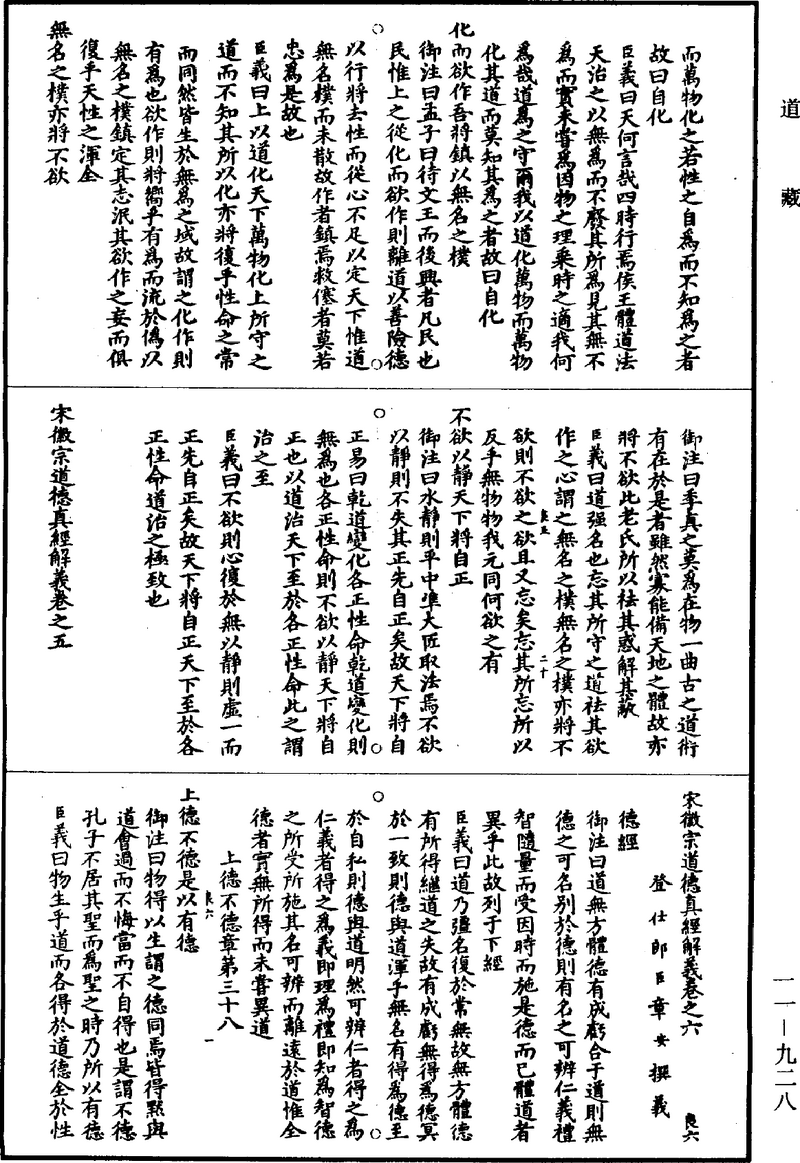 道藏
而萬物化之若性之自為而不知為之者
故曰自化
臣義曰天何言哉四時行焉侯王體道法
天治之以無為而不廢其所為見其無不
為而實未嘗為因物之理乘時之適我何
為哉道為之守爾我以道化萬物而萬物
化其道而莫知其為之者故曰自化
化而欲作吾將鎮以無名之樸
御注曰孟子曰待文王而後興者凡民也
民惟上之從化而欲作則離道以善險德
以行將去性而從心不足以定天下惟道
無名樸而未散故作者鎮焉救僿者莫若
忠為是故也
臣義曰上以道化天下萬物化上所守之
道而不知其所以化亦將復乎性命之常
而同然皆生於無為之域故謂之化作則
有為也欲作則將嚮乎有為而流於偽以
無名之樸鎮定其志泯其欲作之妄而俱
復乎天性之渾全
無名之樸亦將不欲
御注曰季真之莫為在物一曲古之道術
有在於是者雖然寡能備天地之體故亦
將不欲此老氏所以祛其惑解其蔽
臣義曰道强名也忘其所守之道祛其欲
作之心謂之無名之樸無名之樸亦將不
欲則不欲之欲且又忘矣忘其所忘所以
反乎無物物我元同何欲之有
不欲以靜天下將自正
御注曰水靜則平中準大匠取法焉不欲
以靜則不失其正先自正矣故天下將自
正易曰乾道變化各正性命乾道變化則
無為也各正性命則不欲以靜天下將自
正也以道治天下至於各正性命此之謂
治之至
臣義曰不欲則心復於無以靜則虛一而
正先自正矣故天下將自正天下至於各
正性命道治之極致也
宋徽宗道德真經解義卷之五
二十
宋徽宗道德真經解義卷之六
良六
登仕郎臣章安撰義
德經
御注曰道無方體德有成虧合于道則無
德之可名别於德則有名之可辨仁義禮
智隨量而受因時而施是德而已體道者
異乎此故列于下經
臣義曰道乃彊名復於常無故無方體德
有所得繼道之失故有成虧無得為德冥
於一致則德與道渾乎無名有得為德至
於自私則德與道明然可辨仁者得之為
仁義者得之為義即理為禮即知為智德
之所受所施其名可辨而離遠於道惟全
德者實無所得而未嘗異道
上德不德章第三十八
上德不德是以有德
良六
一
御注曰物得以生謂之德同焉皆得默與
道會過而不悔當而不自得也是謂不德
孔子不居其聖而為聖之時乃所以有德
臣義曰物生乎道而各得於道德全於性
一一—九二八